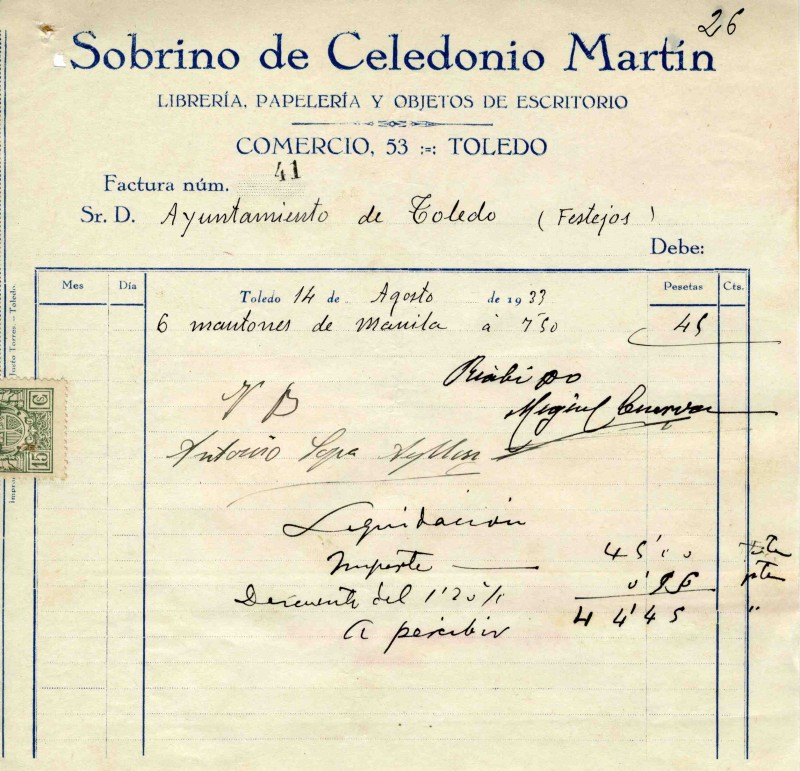 26
Sobrino de Celedonio Martín
LIBRERÍA, PAPELERÍA Y OBJETOS DE ESCRITORIO
COMERCIO, 53 :=: TOLEDO
Factura núm. 41
Sr. D. Ayuntamiento de Toledo (Festejos)
Debe:
Mes Día Pesetas Cts.
Toledo 14 de Agosto de 1933
6 mantones de Manila á 7'50 45
Recibi
Miguel Cuervo
V B
Antonio
Liquidación
Importe 45'00
Descuento del 1'20%
A percibir 44'45 "
Justo Torres.—Toledo.
15 C